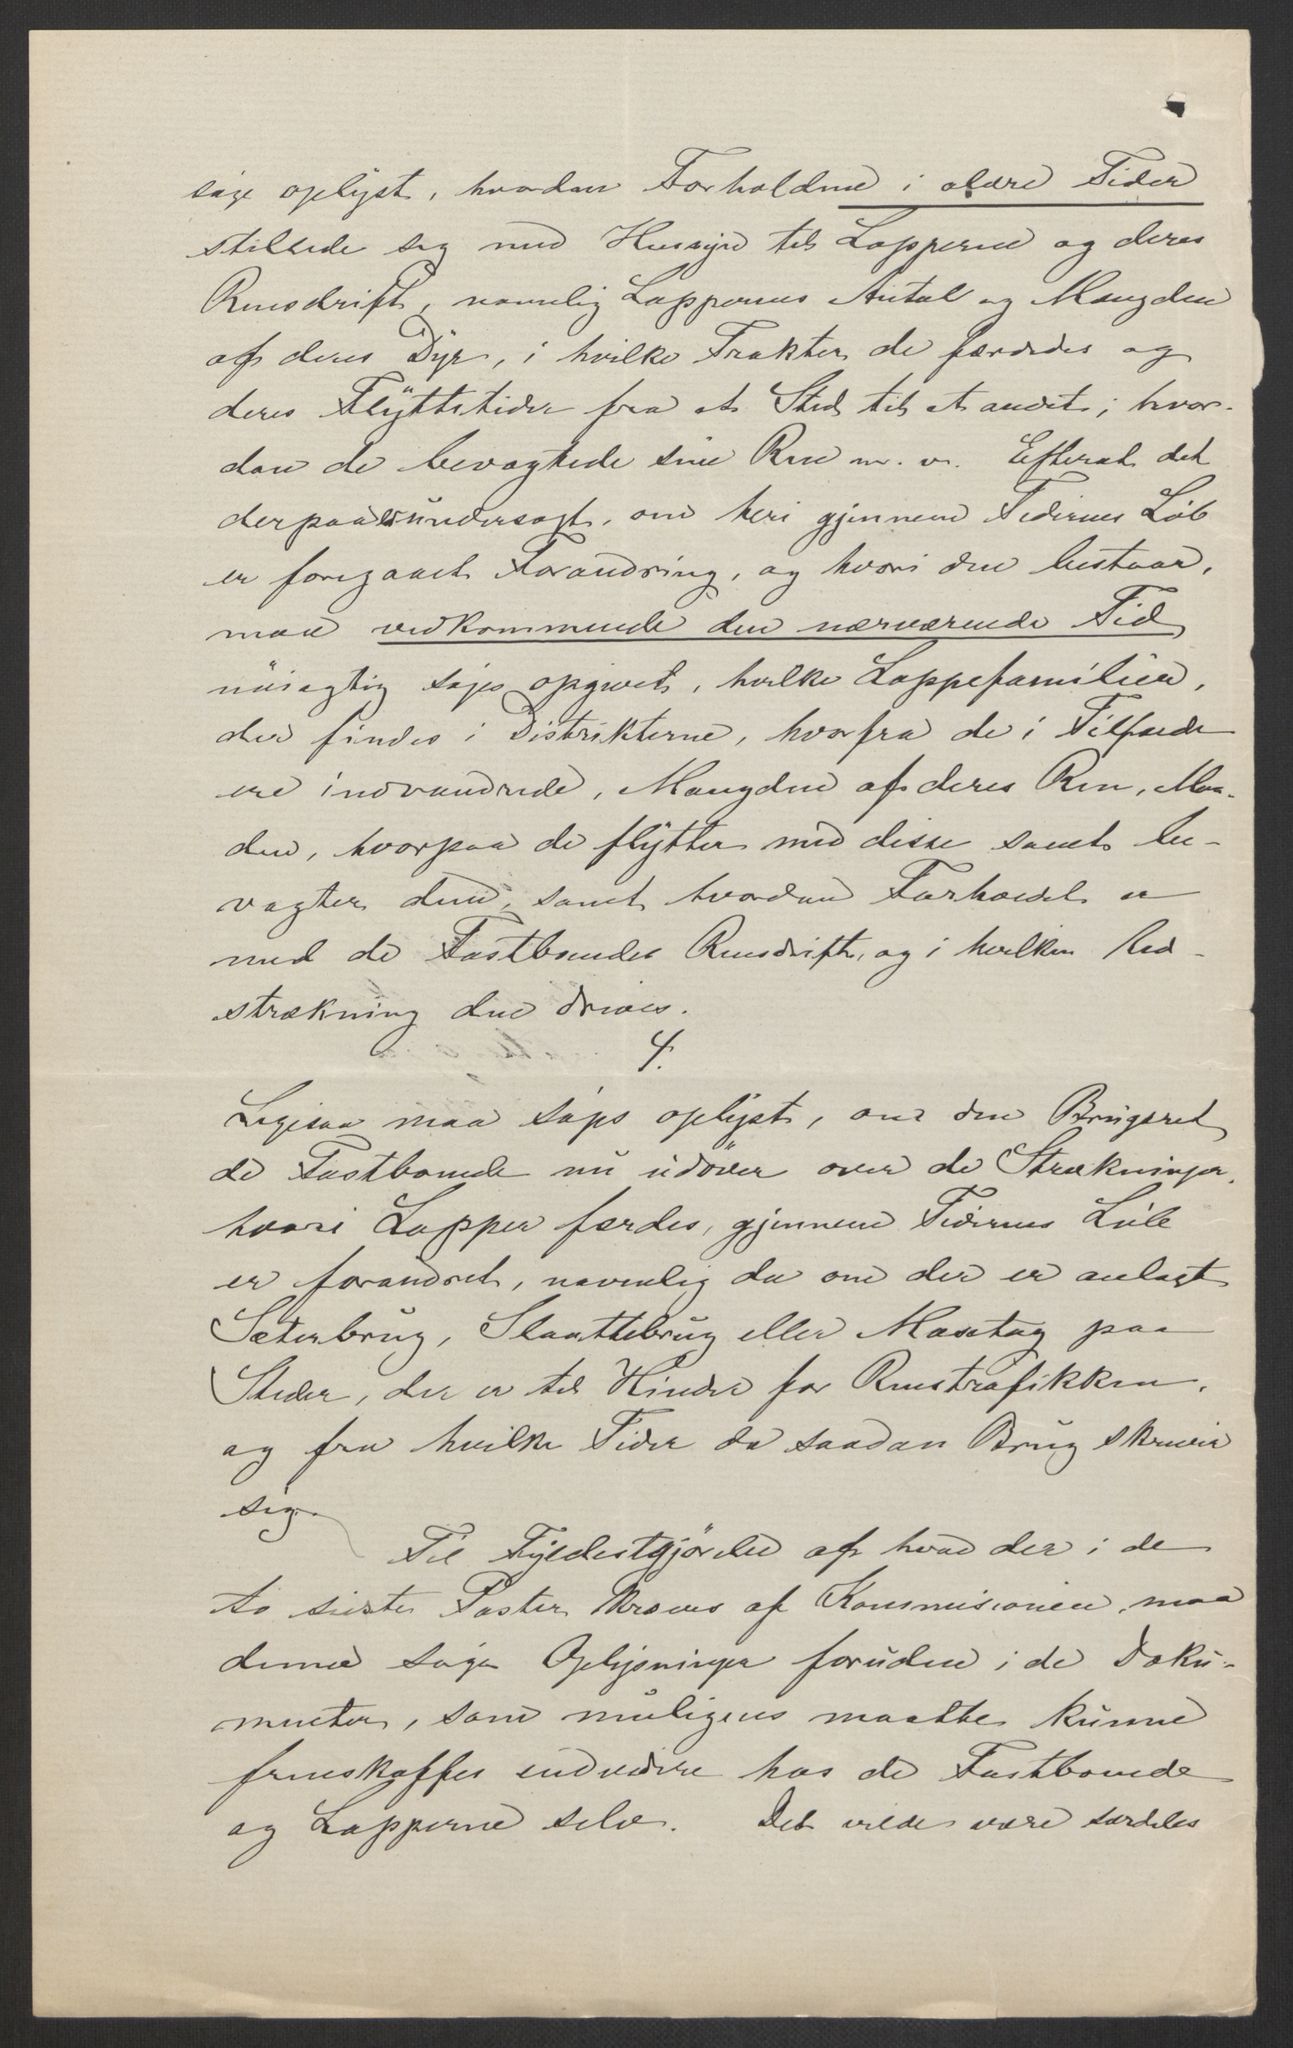 søge oplyst, hvordan Forholdene i ældre Tider
stillede sig med Hensyn til Lapperne og deres
Rensdrift, navnlig Lappernes Antal og Mængden
af deres Dyr, i hvilke Trakter de færdedes og
deres Flyttetider fra et Sted til et andet, hvor-
dan de bevogtede sine Ren m. v. Efterat det
derpaa er undersøgt, om heri gjennem Tidernes Løb
er foregaaet Forandring, og hvori den bestaar,
maa vedkommende den nærværende Tid
nøiagtig søges opgivet, hvilke Lappefamilier,
der findes i Distrikterne, hvorfra de i Tilfælde
ere indvandrede, Mængden af deres Ren, Maa-
den, hvorpaa de flytter med disse samt be-
vogter dem, samt hvordan Forholdet er
med de Fastboendes Rensdrift, og i hvilken Ud-
strækning den drives.
4.
Ligesaa maa søges oplyst, om den Brugsret
de Fastboende nu udøver over de Strækninger,
hvori Lapper færdes, gjennem Tidernes Løb
er forandret, navnlig da om der er anlagt
Sæterbrug, Slaattebrug eller Mosetag paa
Steder, der er til Hinder for Renstrafikken,
og fra hvilke Tider da saadan Brug skriver
sig.
Til Fyldestgjørelse af hvad der i de
to sidste Poster kræves af Kommissionen, maa
denne søge Oplysninger foruden i de Doku-
menter, som muligens maatte kunne
fremskaffes endvidere hos de Fastboende
og Lapperne selv. Det vilde være særdeles